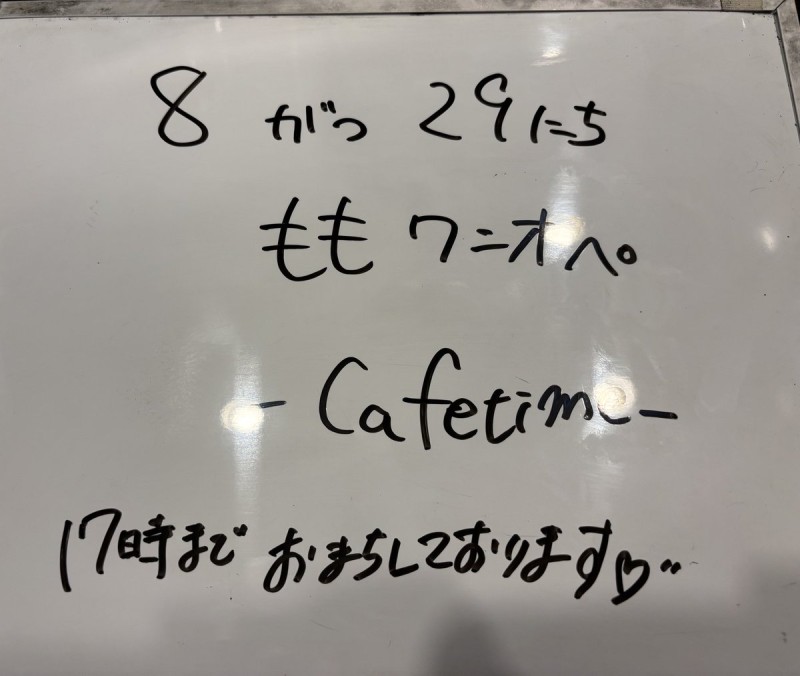 8 がつ 29にち
もも ワニオペ。
- Cafetime -
17時まで おまちしております♡